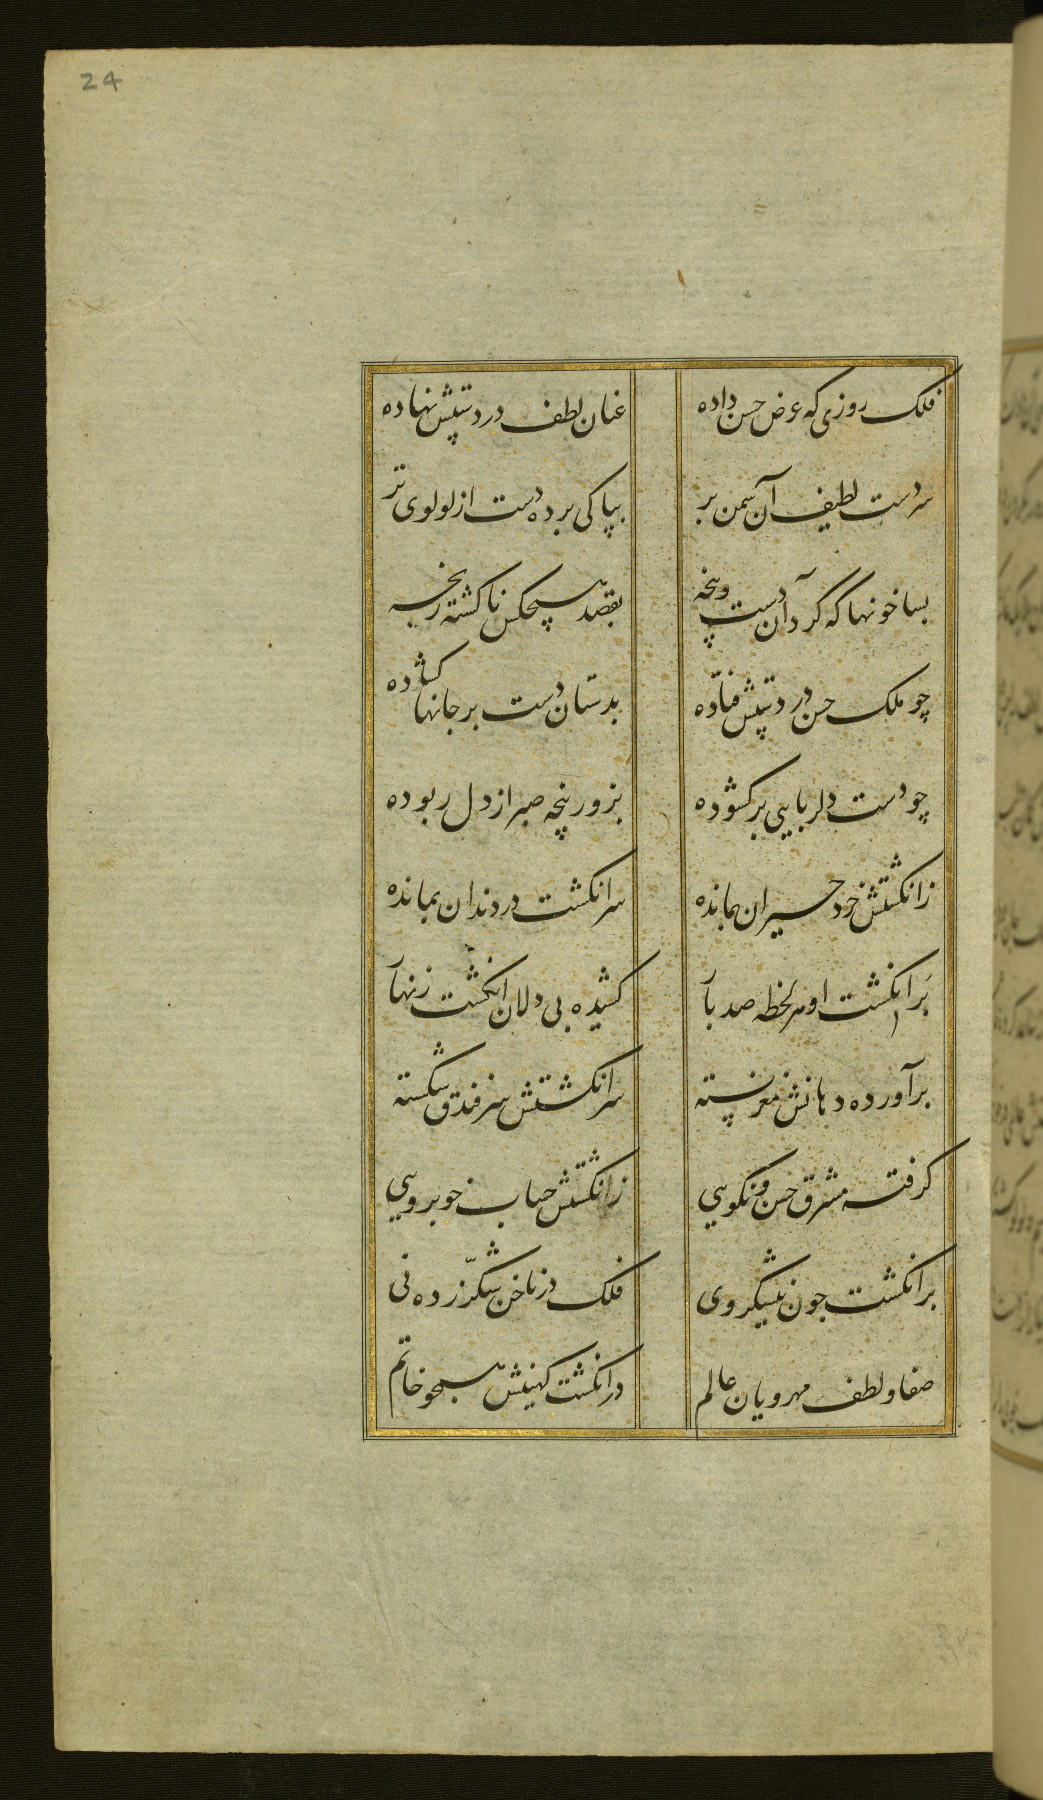 24
فلک روزی که عرض حسن داده عنان لطف در دستش نهاده
سر دست لطیف آن سمن بر بپاکی برده دست از لولوی تر
بسا خونها که گرد آن دست و پنجه بقصد هیچکس ناکشته رنجه
چو ملک حسن در دستش فتاده بدستان دست بر جانها کشاده
چو دست دلربایی برکشوده بزور پنجه صبر از دل ربوده
ز انکشتش خرد حیران بمانده سر انکشت در دندان بمانده
بر انکشت او هر لحظه صد بار کشیده بی دلان انکشت زنهار
برآورده دهانش مغز پسته سر انکشتش سر فندق شکسته
کرفته مشرق حسن و نکویی ز انکشتش حساب خوبرویی
بر انکشت چون نیشکر وی فلک در ناخن شکر زده نی
صفا و لطف مهرویان عالم در انکشت کهینش همچو خاتم